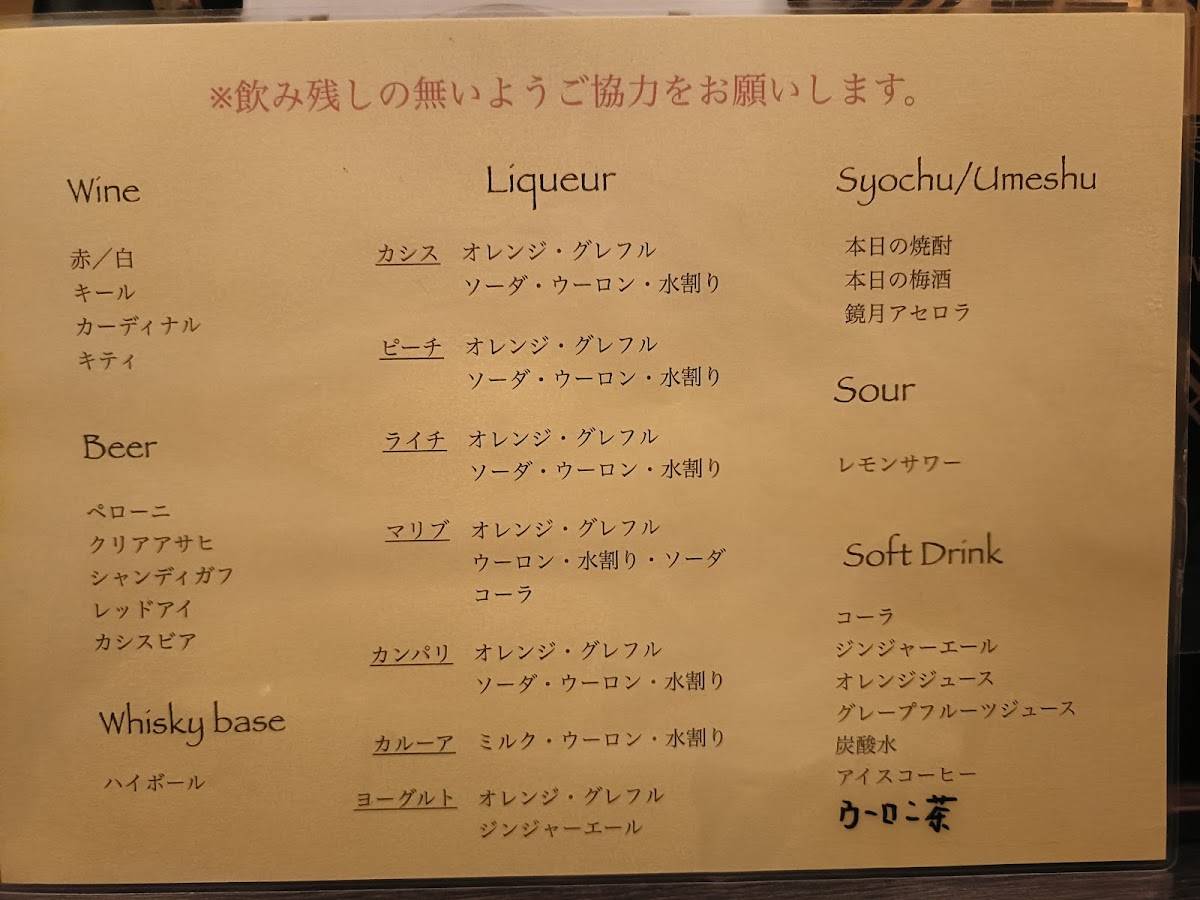 ※飲み残しの無いようご協力をお願いします。
Wine
赤／白
キール
カーディナル
キティ
Beer
ペローニ
クリアアサヒ
シャンディガフ
レッドアイ
カシスビア
Whisky base
ハイボール
Liqueur
カシス オレンジ・グレフル
ソーダ・ウーロン・水割り
ピーチ オレンジ・グレフル
ソーダ・ウーロン・水割り
ライチ オレンジ・グレフル
ソーダ・ウーロン・水割り
マリブ オレンジ・グレフル
ウーロン・水割り・ソーダ
コーラ
カンパリ オレンジ・グレフル
ソーダ・ウーロン・水割り
カルーア ミルク・ウーロン・水割り
ヨーグルト オレンジ・グレフル
ジンジャーエール
Syochu/Umeshu
本日の焼酎
本日の梅酒
鏡月アセロラ
Sour
レモンサワー
Soft Drink
コーラ
ジンジャーエール
オレンジジュース
グレープフルーツジュース
炭酸水
アイスコーヒー
ウーロン茶